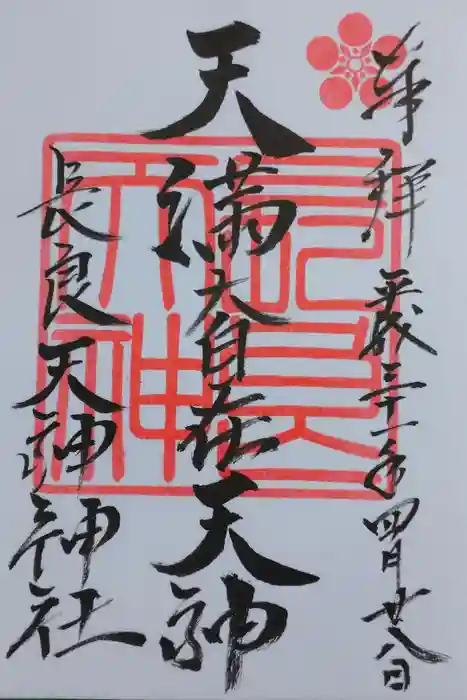 奉拝 平成三十一年四月廿八日
天満大自在天神
長良天神神社
長良天神